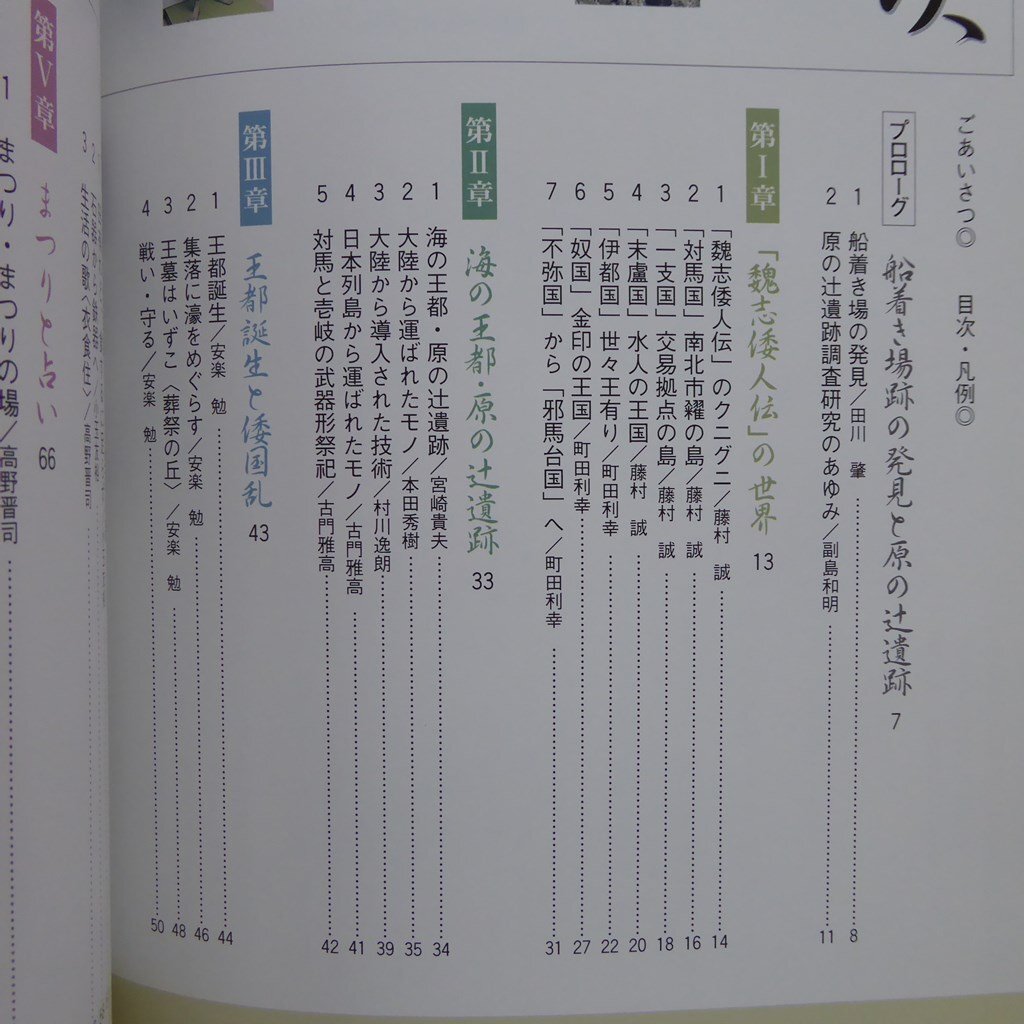 次
ごあいさつ◎　目次・凡例◎
プロローグ　船着き場跡の発見と原の辻遺跡　7
1　船着き場の発見／田川　肇……8
2　原の辻遺跡調査研究のあゆみ／副島和明……11
第Ⅰ章　「魏志倭人伝」の世界　13
1　「魏志倭人伝」のクニグニ／藤村　誠……14
2　「対馬国」南北市糴の島／藤村　誠……16
3　「一支国」交易拠点の島／藤村　誠……18
4　「末盧国」水人の王国／藤村　誠……20
5　「伊都国」世々王有り／町田利幸……22
6　「奴国」金印の王国／町田利幸……27
7　「不弥国」から「邪馬台国」へ／町田利幸……31
第Ⅱ章　海の王都・原の辻遺跡　33
1　海の王都・原の辻遺跡／宮崎貴夫……34
2　大陸から運ばれたモノ／本田秀樹……35
3　大陸から導入された技術／村川逸朗……39
4　日本列島から運ばれたモノ／古門雅高……41
5　対馬と壱岐の武器形祭祀／古門雅高……42
第Ⅲ章　王都誕生と倭国乱　43
1　王都誕生／安楽　勉……44
2　集落に濠をめぐらす／安楽　勉……46
3　王墓はいずこ〈葬祭の丘〉／安楽　勉……48
4　戦い・守る／安楽　勉……50
2
3　生活の歌〈衣食住〉／高野晋司
第Ⅴ章　まつりと占い　66
1　まつり・まつりの場／高野晋司……